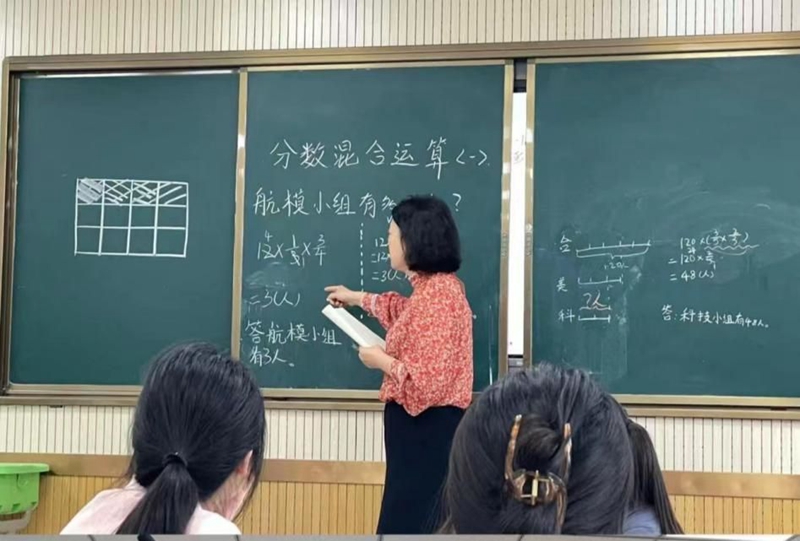 分数混合运算〈一〉.
航模小组有 ?
12×1/3×3/4
=3(人)
答航模小组
有3人。
12
=12
=3(人
合
美
?人
科
120×
=120×
=48(人)
答:科技小组有48人。